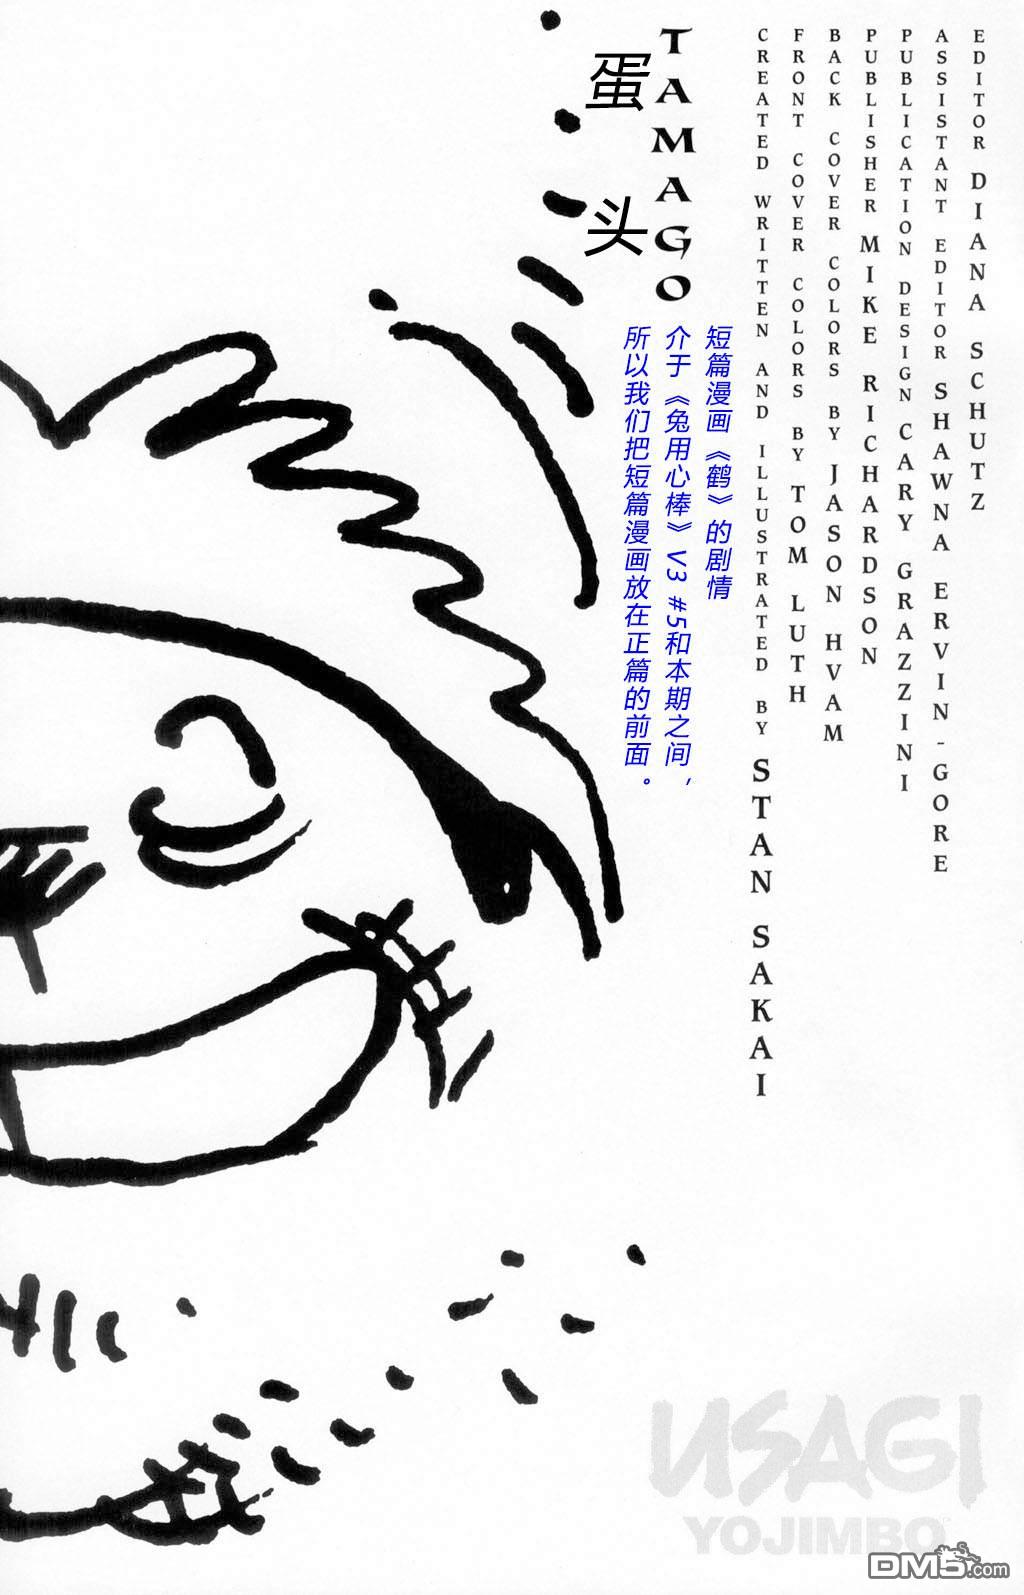 EDITOR DIANA SCHUTZ
ASSISTANT EDITOR SHAWNA ERVIN-GORE
PUBLICATION DESIGN CARY GRAZZINI
PUBLISHER MIKE RICHARDSON
BACK COVER COLORS BY JASON HVAM
FRONT COVER COLORS BY TOM LUTH
CREATED WRITTEN AND ILLUSTRATED BY STAN SAKAI
TAMAGO
蛋头
短篇漫画《鹤》的剧情
介于《兔用心棒》V3 #5和本期之间，
所以我们把短篇漫画放在正篇的前面。
USAGI
YOJIMBO
DM5.com